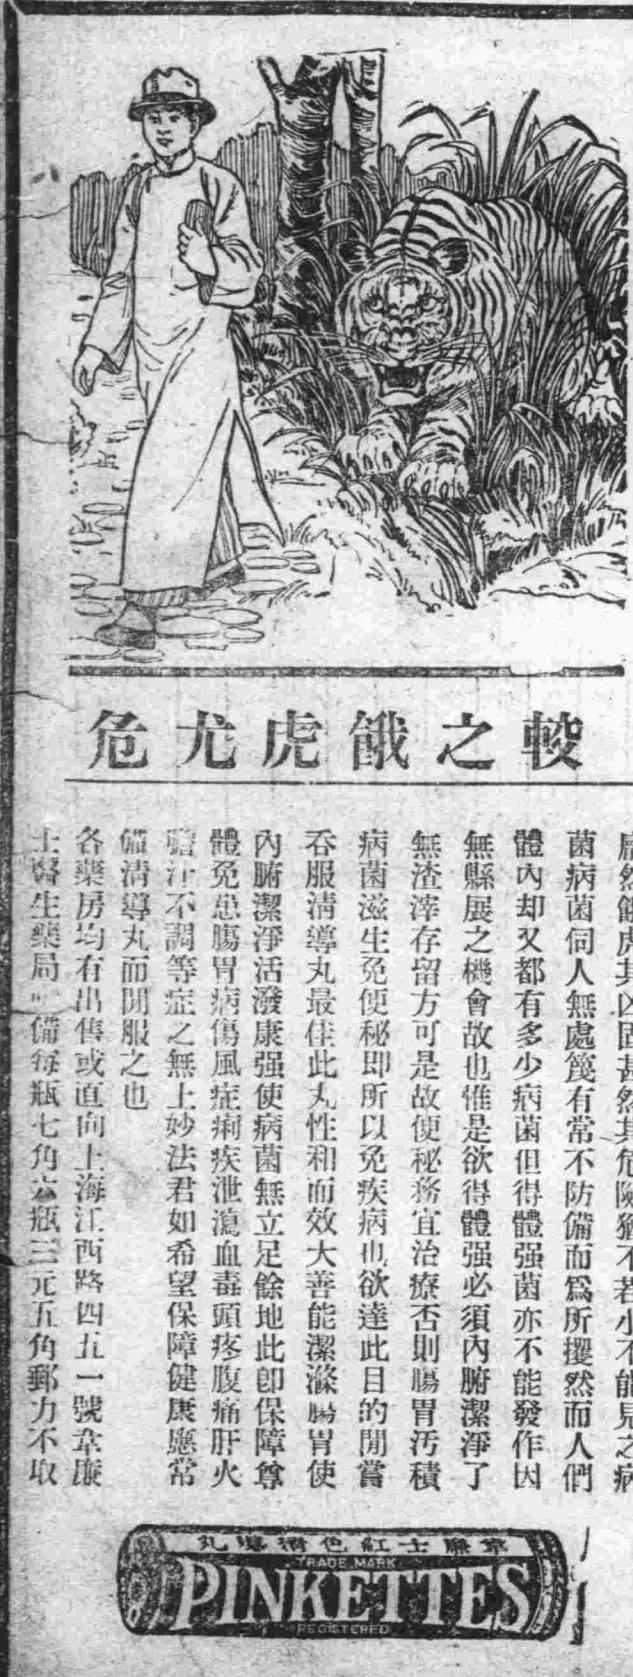 較之餓虎尤危
然餓虎其凶固甚然其危險猶不若小不能見之病
菌病菌伺人無處篾有常不防備而為所攫然而人們
體內却又都有多少病菌但得體强菌亦不能發作因
無縣展之機會故也惟是欲得體强必須內腑潔淨了
無渣滓存留方可是故便秘務宜治療否則腸胃污積
病菌滋生免便秘即所以免疾病也欲達此目的閒嘗
吞服清導丸最佳此丸性和而效大善能潔滌腸胃使
內腑潔淨活潑康强使病菌無立足餘地此卽保障尊
體免患腸胃病傷風症痢疾泄瀉血毒頭疼腹痛肝火
膽汁不調等症之無上妙法君如希望保障健康應常
備清導丸而閒服之也
各藥房均有出售或直向上海江西路四五一號韋廉
士醫生藥局 備每瓶七角六瓶三元五角郵力不取
韋廉士紅色清導丸
TRADE MARK
PINKETTES
REGISTERED